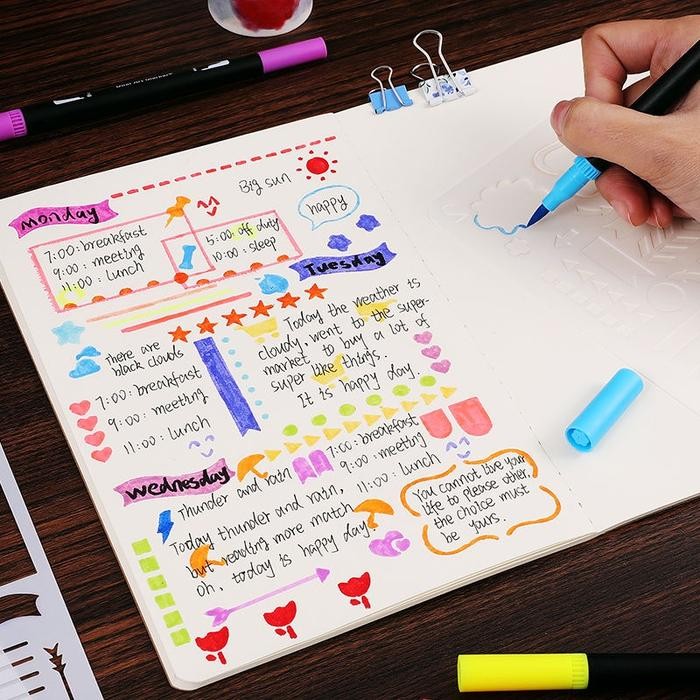 Big sun
monday
happy
7:00: breakfast
9:00: meeting
11:00: lunch
15:00 off duty
10:00: sleep
Tuesday
There are
black clouds
7:00: breakfast
9:00: meeting
11:00: lunch
Today the weather is
cloudy, went to the super-
market to buy a lot of
super like things.
It is happy day.
wednesday
Thunder and rain
7:00: breakfast
9:00: meeting
11:00: lunch
Today thunder and rain,
but reading more match
oh, today is happy day!
You cannot live your
life to please other.
the choice must
be yours.